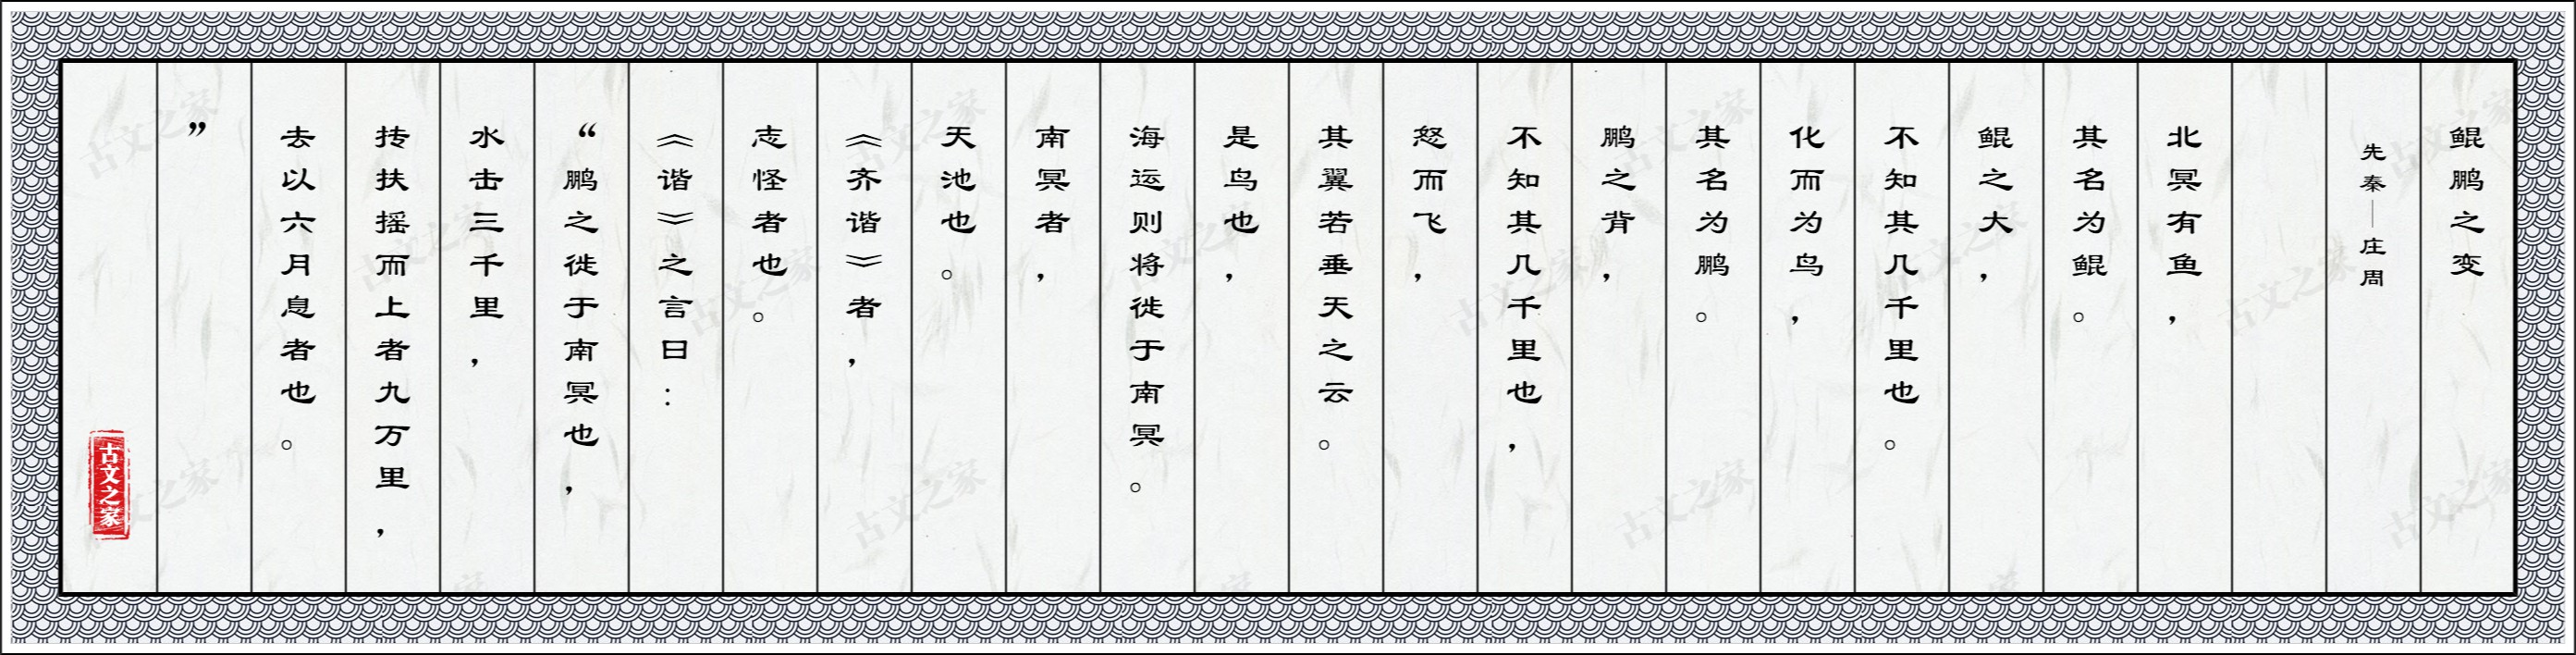 鲲鹏之变
先秦—庄周
北冥有鱼，
其名为鲲。
鲲之大，
不知其几千里也。
化而为鸟，
其名为鹏。
鹏之背，
不知其几千里也，
怒而飞，
其翼若垂天之云。
是鸟也，
海运则将徙于南冥。
南冥者，
天池也。
《齐谐》者，
志怪者也。
《谐》之言曰：
“鹏之徙于南冥也，
水击三千里，
抟扶摇而上者九万里，
去以六月息者也。
”
古文之家